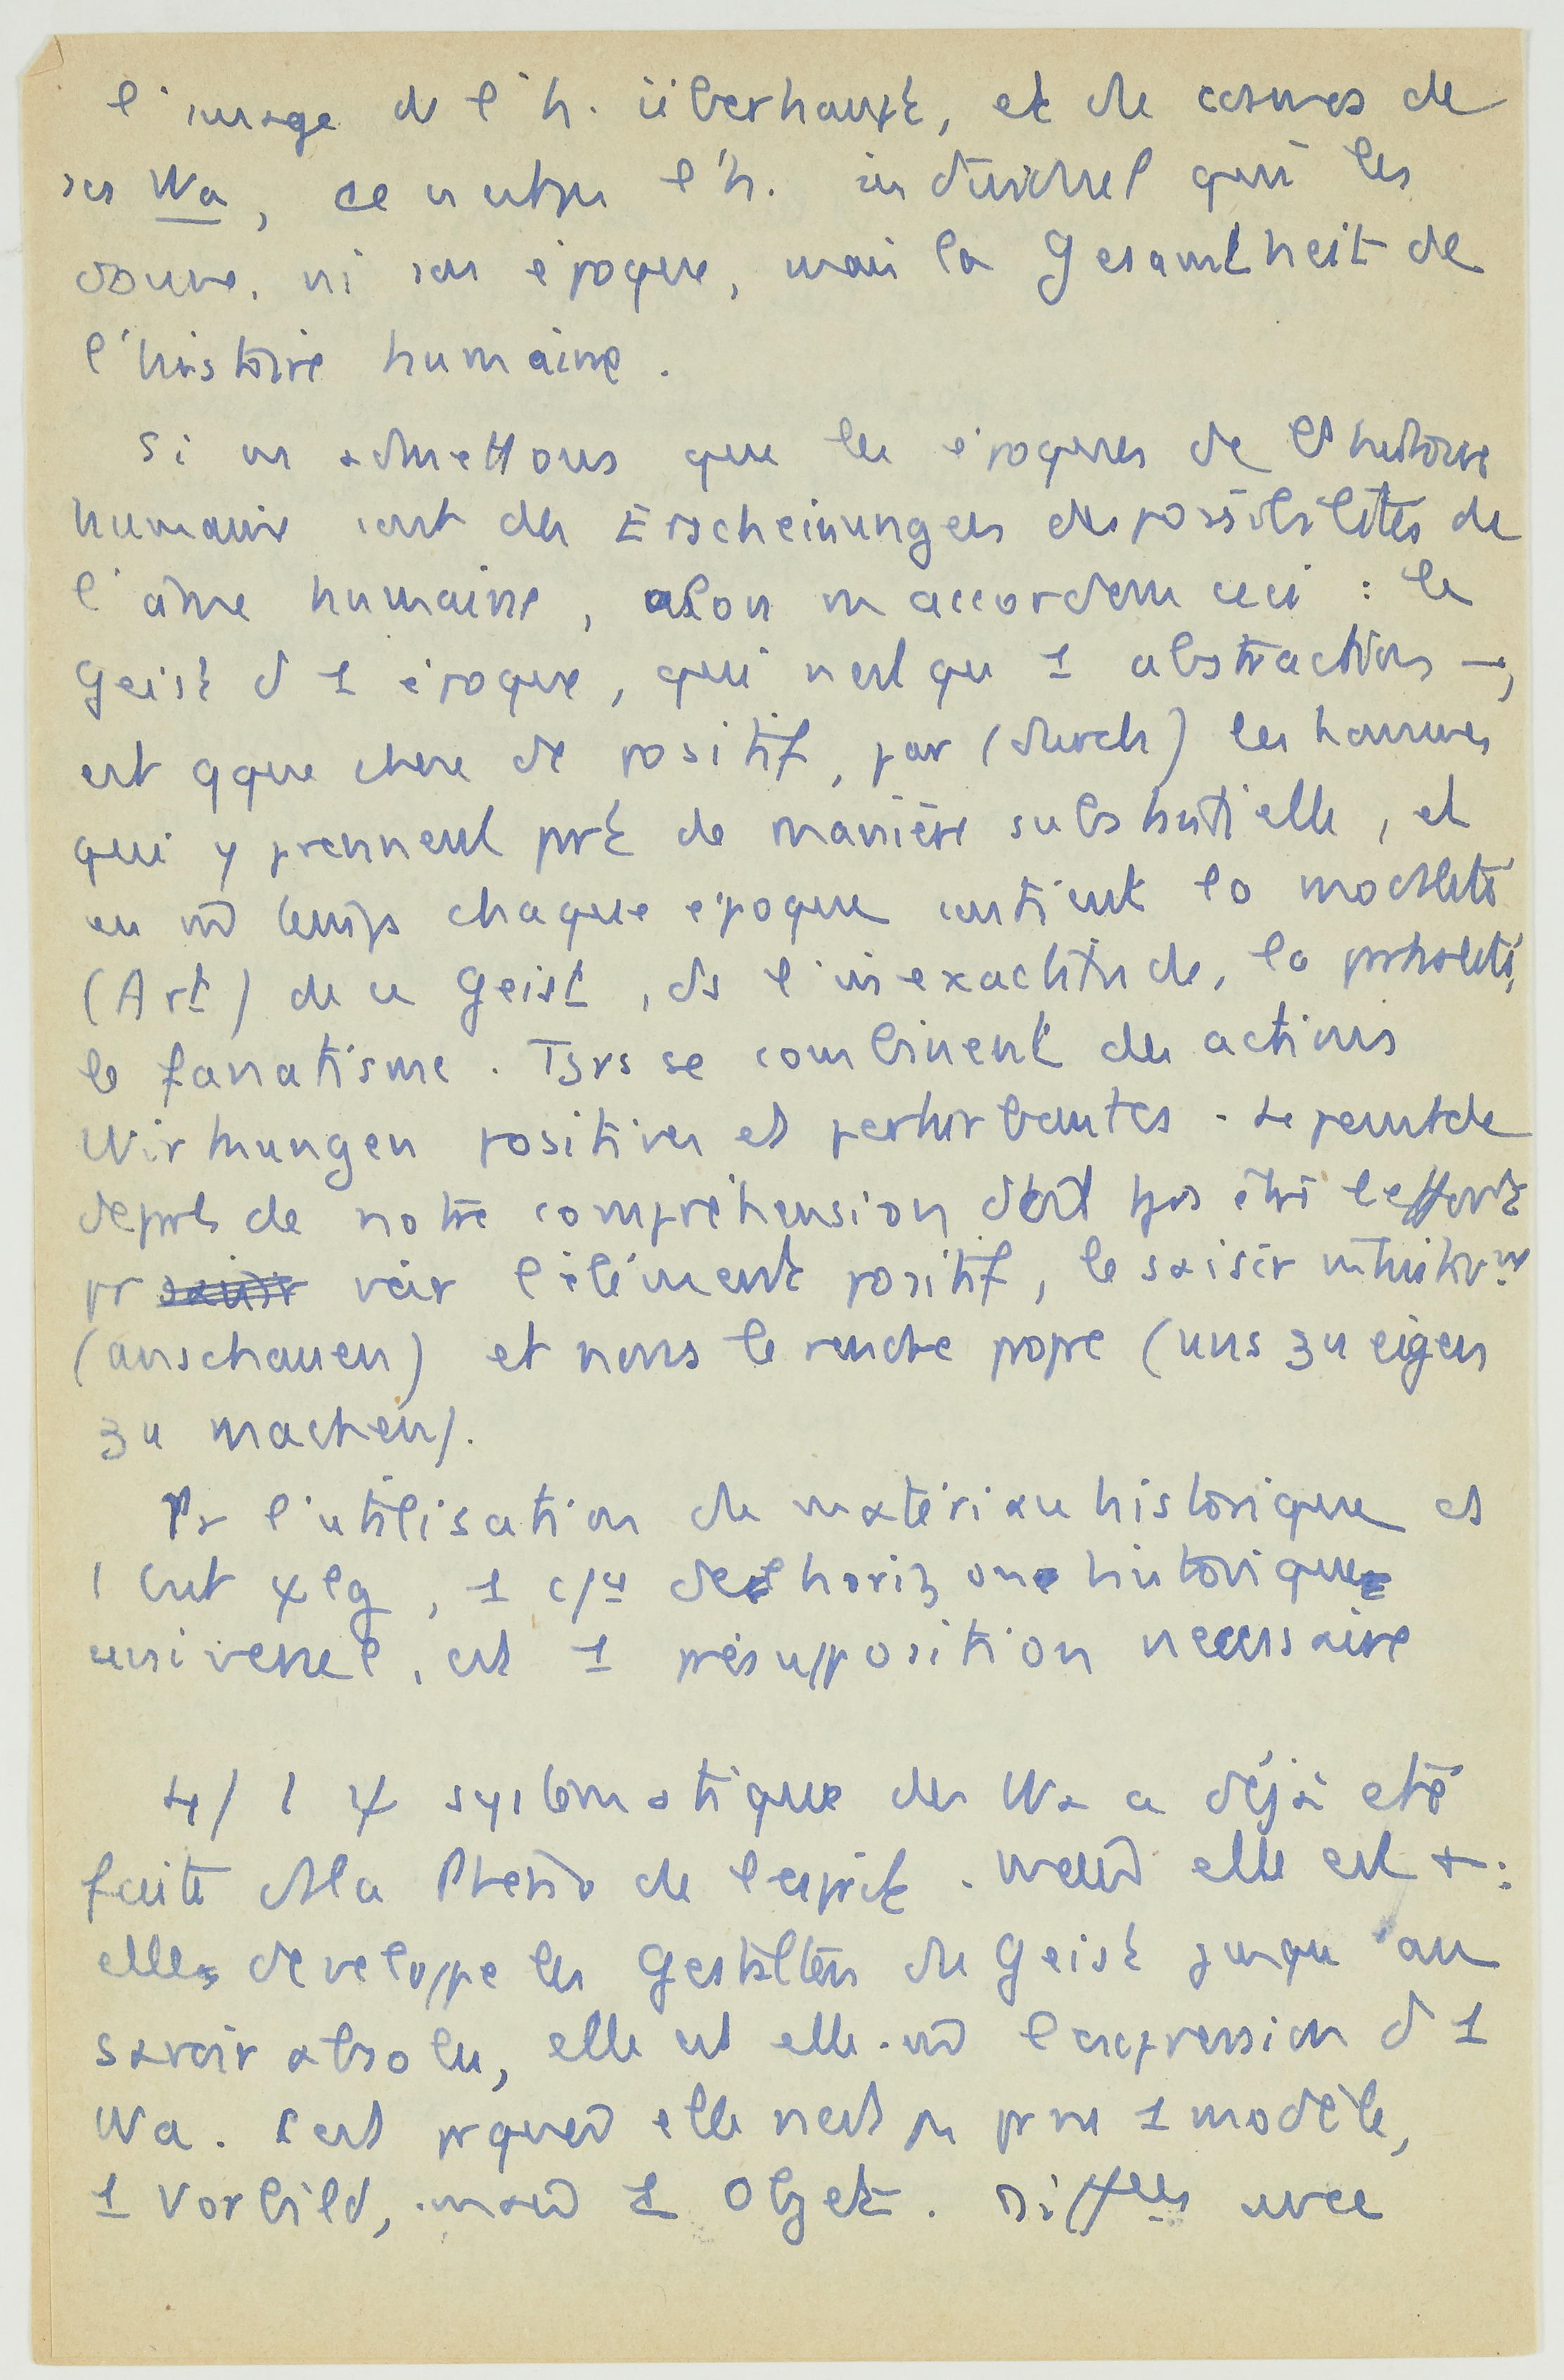 l'image de l'h. überhaupt, et du cosmos de
ses Wa, ce n'est pas l'h. individuel qui les
donne, ni son époque, mais la Gesamtheit de
l'histoire humaine.
Si ns admettons que les époques de l'histoire
humaine sont des Erscheinungen des possibilités de
l'âme humaine, alors ns accordons ceci : le
Geist d 1 époque, qui n'est qu 1 abstraction –,
est qque chose de positif, par (durch) les hommes
qui y prennent prt de manière substantielle, et
en m̂ temps chaque époque contient la modalité
(Art) de ce Geist, ds l'inexactitude, la partialité,
le fanatisme. Tjrs se combinent des actions
Wirkungen positives et perturbantes. Le point de
déprt de notre compréhension doit tjrs être l'effort
pr saisir voir l'élément positif, le saisir intuitivt
(anschauen) et nous le rendre propre (uns zu eigen
zu machen).
Pr l'utilisation du matériau historique et
1 horizon historique
universel, est 1 présupposition nécessaire
4/ 1 ψ systématique des Wa a déjà été
faite ds la Phéno de l'esprit. elle est +:
elle développe les Gestalten du Geist jusqu'au
savoir absolu, elle est elle-m̂ l'expression d 1
Wa. C'est prquoi elle n'est ps pr ns 1 modèle,
1 Vorbild, mais 1 Objekt. avec